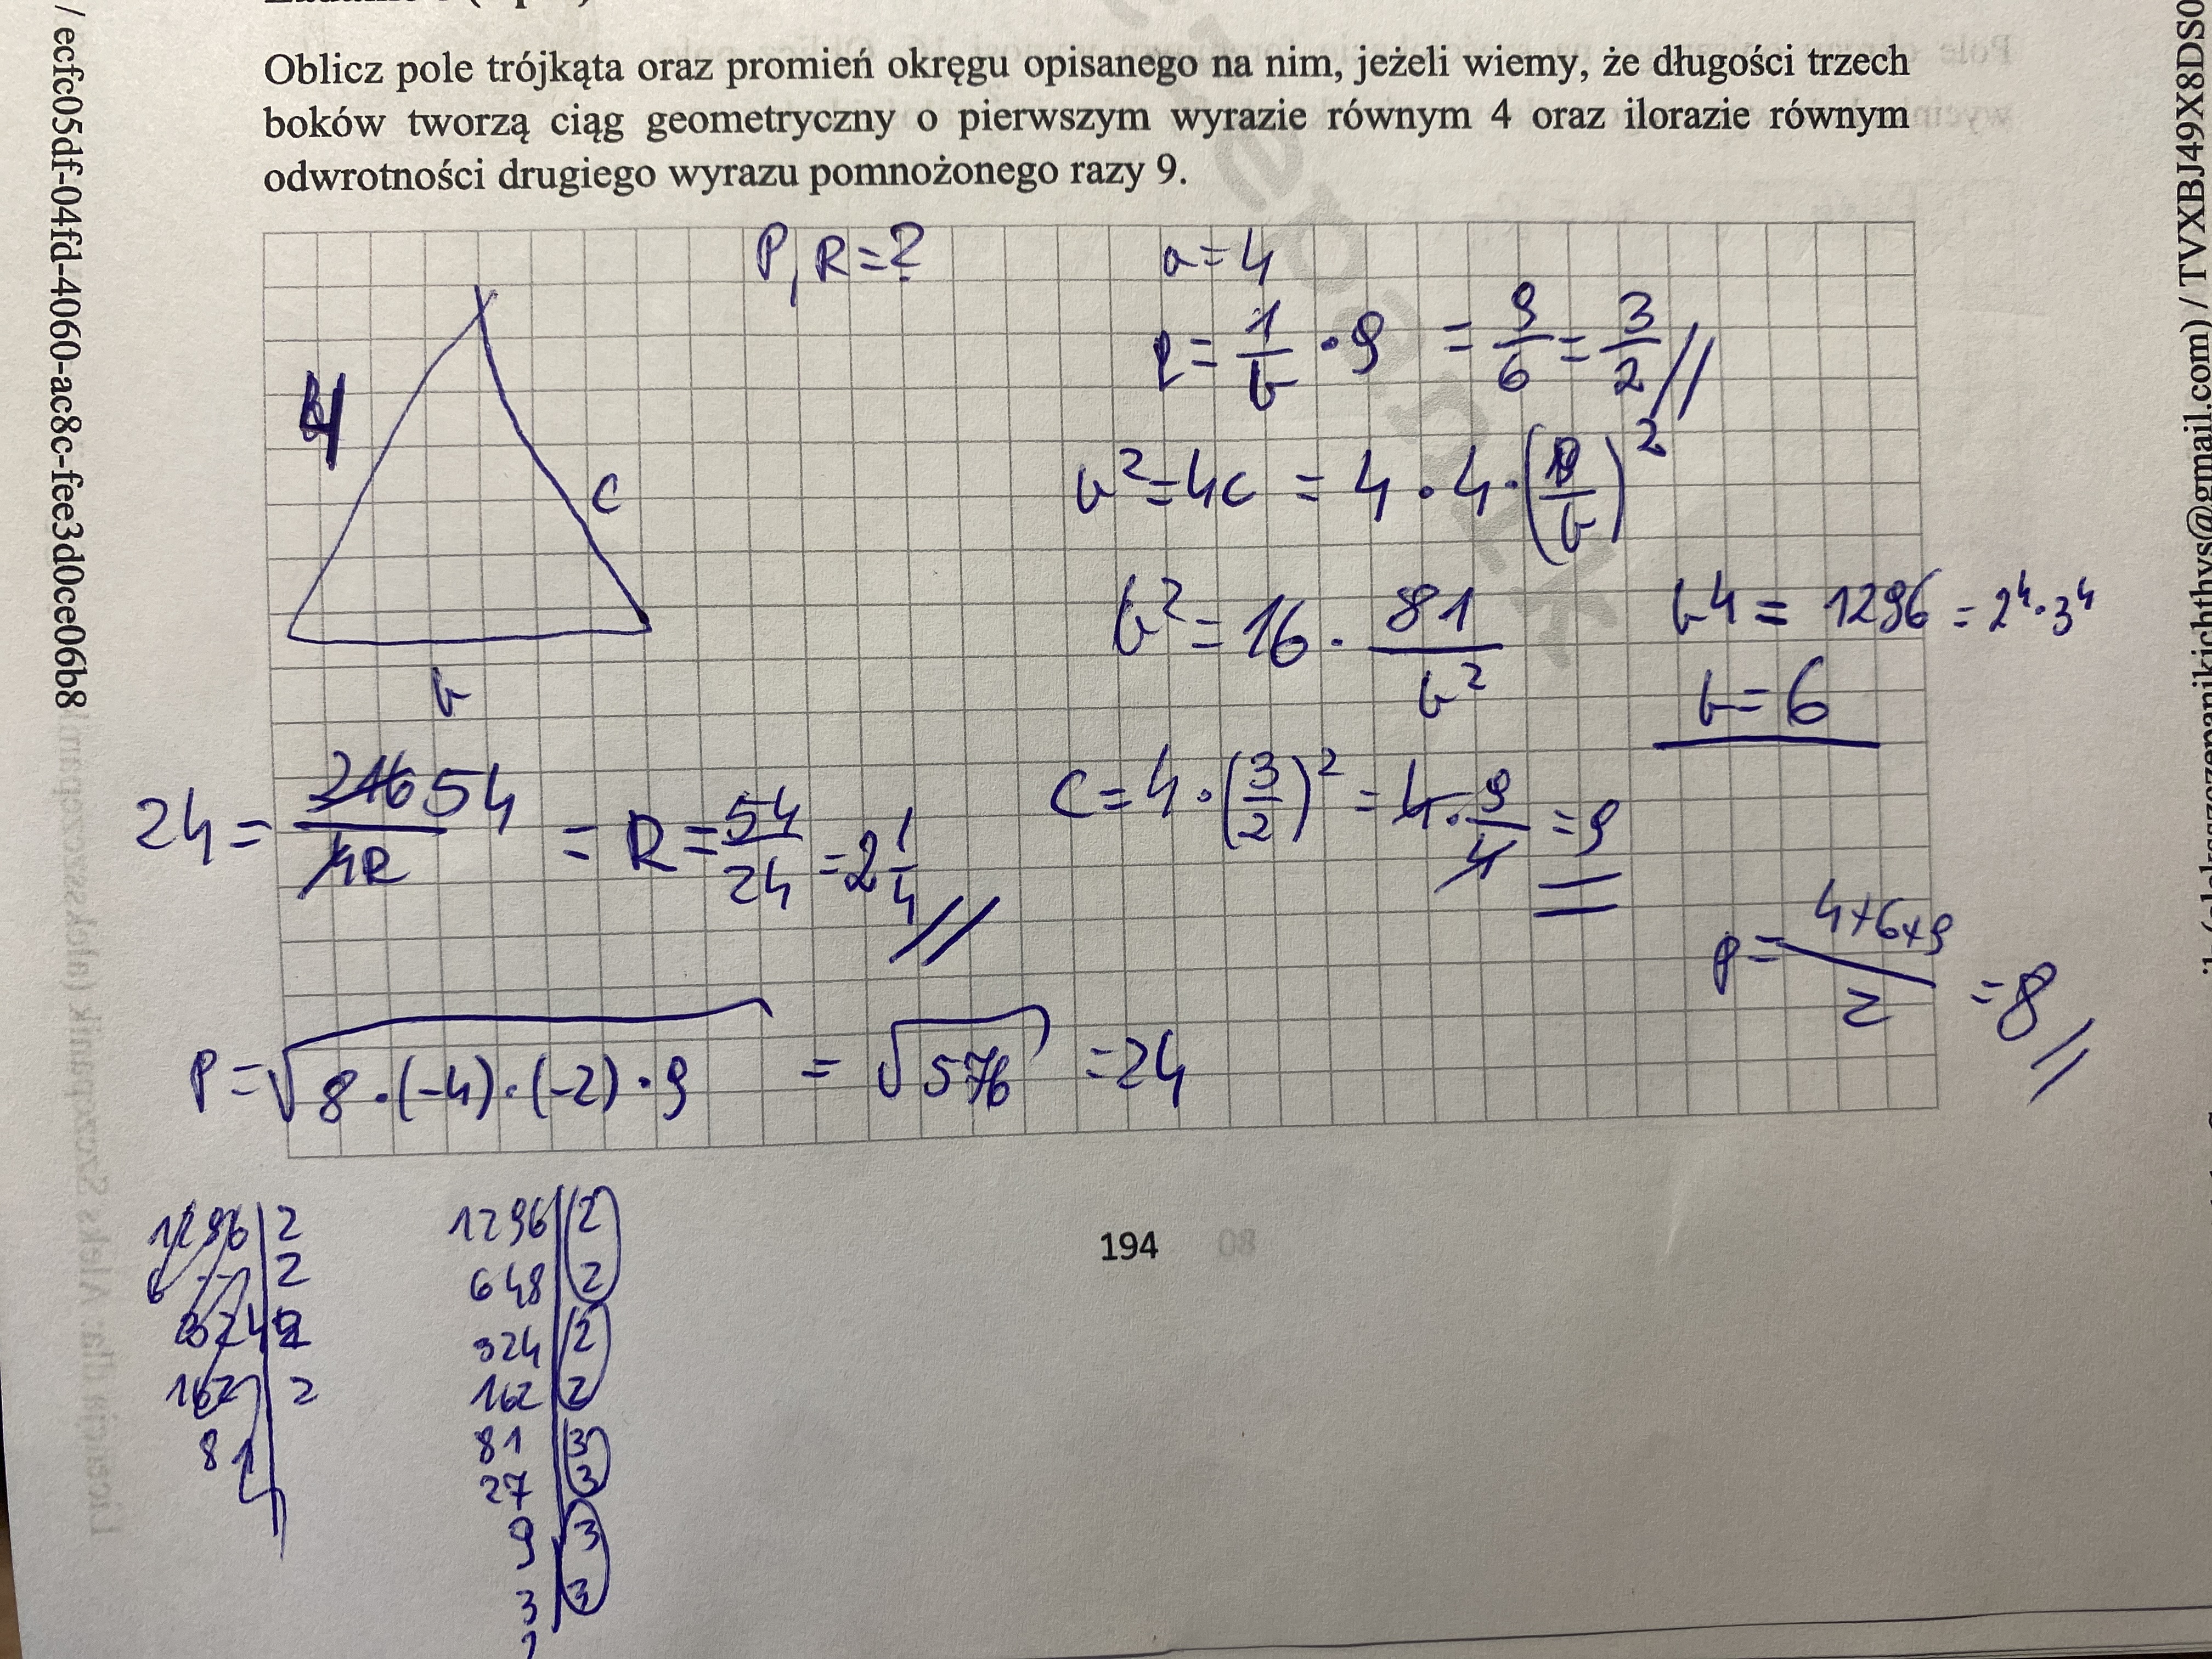 Oblicz pole trójkąta oraz promień okręgu opisanego na nim, jeżeli wiemy, że długości trzech
boków tworzą ciąg geometryczny o pierwszym wyrazie równym 4 oraz ilorazie równym
odwrotności drugiego wyrazu pomnożonego razy 9.
P, R = ?
a = 4
q = 1/b · 9 = 9/6 = 3/2 //
4
c
b
b² = 4c = 4 · 4 · (9/b)²
b² = 16 · 81/b²
b4 = 1296 = 2⁴ · 3⁴
b = 6
24 = 54/4R = R = 54/24 = 2 1/4 //
c = 4 · (3/2)² = 4 · 9/4 = 9
p = 4+6+9/2 = 8 //
P = √8 · (-4) · (-2) · 9 = √576 = 24
1296 | 2
2
324 2
162 2
81
1296 | 2
648 2
324 2
162 2
81 3
27 3
9 3
3 3
194
/ ecfc05df-04fd-4060-ac8c-fee3d0ce06b8
gmail.com) / TVXBJ49X8DS0